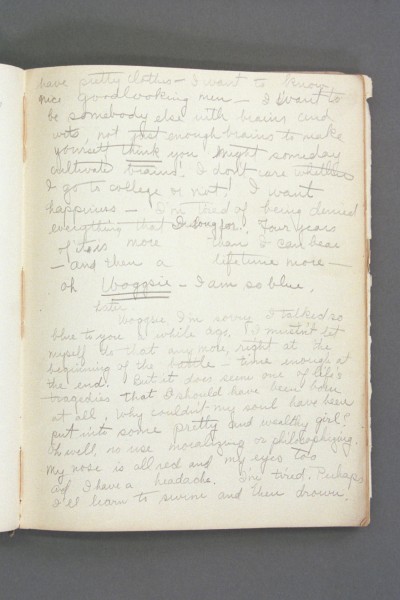 have pretty clothes — I want to know
nice goodlooking men — I want to
be somebody else with brains and
wits, not just enough brains to make
yourself think you might someday
cultivate brains! I don't care whether
I go to college or not! I want
happiness — I'm tired of being denied
everything that I long for. Four years
of this more than I can bear
— and then a lifetime more —
oh Woggsie — I am so blue.
Later
Woggsie, I'm sorry I talked so
blue to you a while ago. I mustn't let
myself do that any more, right at the
beginning of the battle — time enough at
the end. But it does seem one of life's
tragedies that I should have been born
at all. Why couldn't my soul have been
put into some pretty and wealthy girl?
Oh well, no use moralizing or philosophizing.
My nose is all red and my eyes too
and I have a headache. I'm tired. Perhaps
I'll learn to swim and then drown.